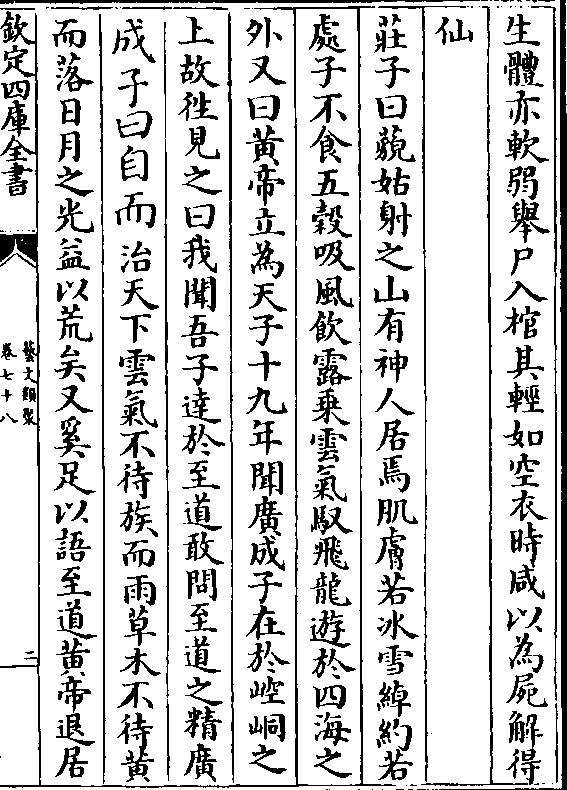 生體亦軟弱舉尸入棺其輕如空衣時咸以為屍解得
仙
莊子曰藐姑射之山有神人居焉肌膚若冰雪綽約若
處子不食五榖吸風飲露乗雲氣馭飛龍遊於四海之
外又曰黄帝立為天子十九年聞廣成子在於崆峒之
上故徃見之曰我聞吾子達於至道敢問至道之精廣
成子曰自而治天下雲氣不待族而雨草木不待黄
而落日月之光益以荒矣又奚足以語至道黄帝退居
欽定四庫全書
藝文類聚
卷七十八
二